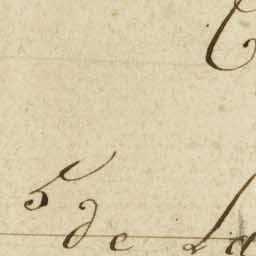 5 de La